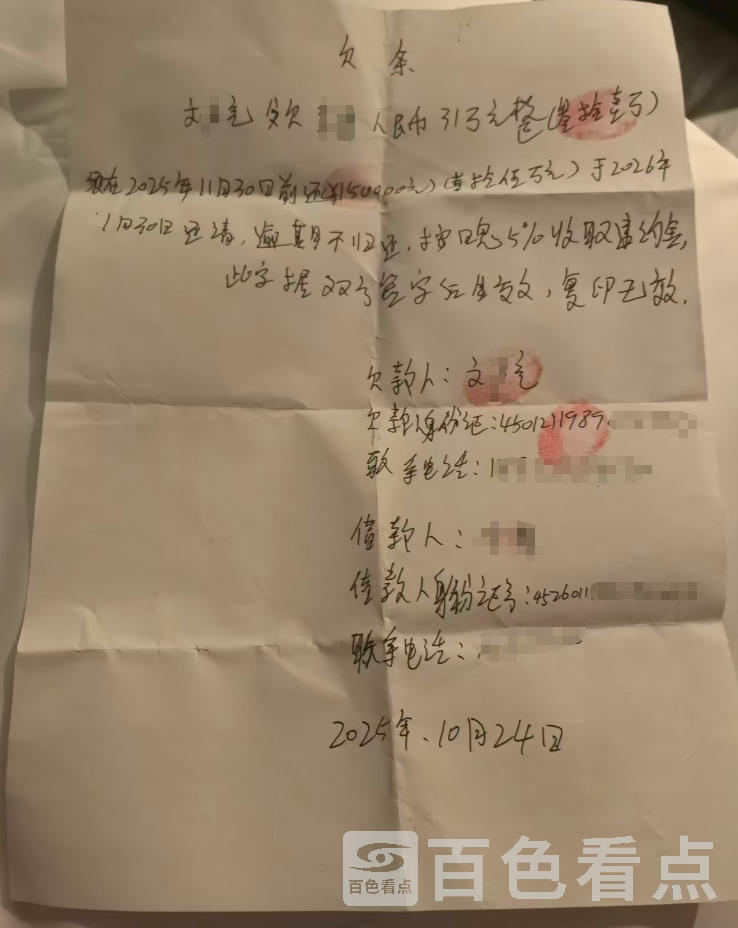 欠条
文 欠 人民币31万元整(叁拾壹万)
现在2025年11月30日前还(¥150000元)(壹拾伍万元)于2026年
1月30日还清,逾期不归还,按口息5%收取违约金,
此字据双方签字后生效,复印无效.
欠款人:文
欠款人身份证:4501211989
联系电话:1
借款人:
借款人身份证号:452601
联系电话:
2025年.10月24日
百色看点
百色看点